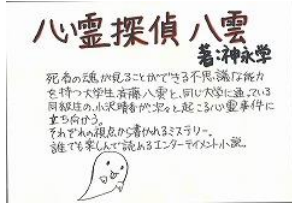 心霊探偵 八雲
著:神永学
死者の魂が見ることができる不思議な能力
を持つ大学生、斉藤八雲と、同じ大学に通っている
同級生の、小沢晴香が次々と起こる心霊事件に
立ち向かう。
それぞれの視点から書かれるミステリー。
誰でも楽しんで読めるエンターテイメント小説。